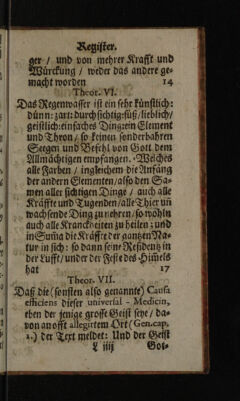 Register.
ger / und von mehrer Krafft und
Würckung / weder das andere ge-
macht worden 14
Theor. VI.
Das Regenwasser ist ein sehr künstlich:
dünn: zart: durchsichtig: süß / lieblich /
geistlich: einfaches Ding: ein Element
und Thron / so keinen sonderbahren
Seegen und Befehl von Gott dem
Allmächtigen empfangen. Welches
alle Farben / ingleichem die Anfäng
der andern Elementen / also den Sa-
men aller sichtigen Dinge / auch alle
Kräffte und Tugenden / alle Thier uñ
wachsende Ding zu nehren / so wohln
auch alle Kranckheiten zu heilen: und
in Suma die Kräffte der gantzen Na-
tur in sich: so dann seine Residentz in
der Lufft / und der Feste des Himels
hat 17
Theor. VII.
Daß die (sonsten also genannte) Causa
efficiens dieser universal - Medicin,
eben der jenige grosse Geist seye / da-
von an offt allegirtem Ort (Gen. cap.
1.) der Text meldet: Und der Geist
L iiij Got-